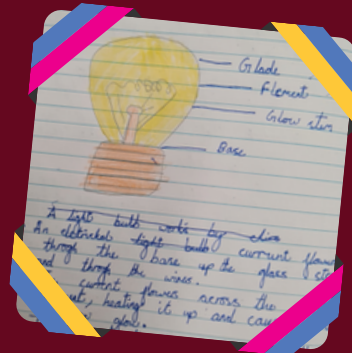 Glade
Flement
Glow stem
Base
A light bulb works by
An eletricket light bulb current flows
throgh the base up the glass
and throgh the wires.
current flowes across the
heating it up and
glow.